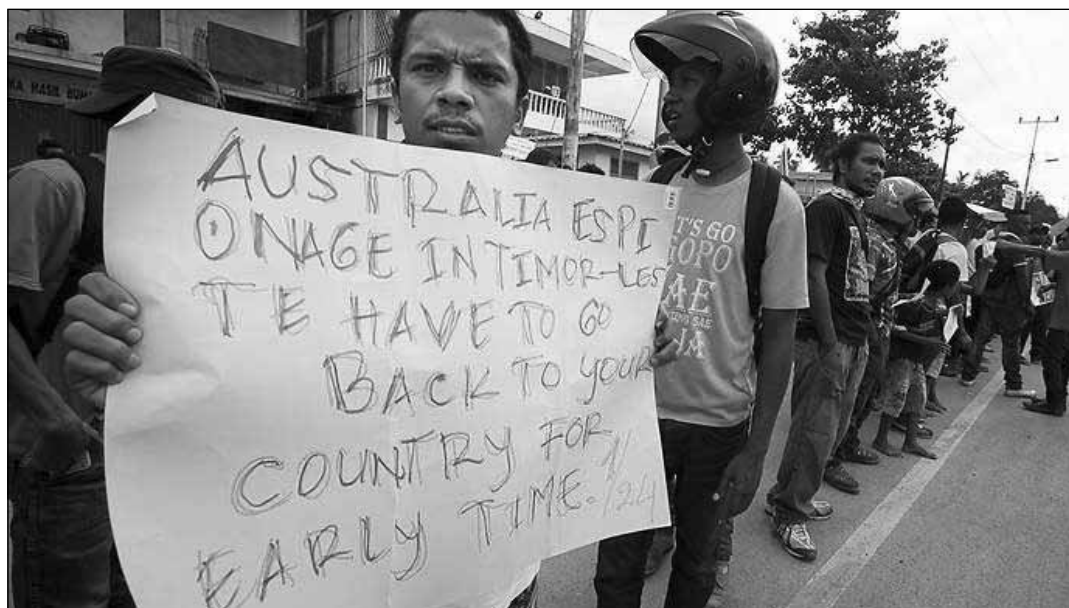 AUSTRALIA ESPI
ONAGE IN TIMOR-LES
TE HAVE TO GO
BACK TO YOUR
COUNTRY FOR
EARLY TIME.
T'S GO
AE
SAE
JA
HASIL BUMI